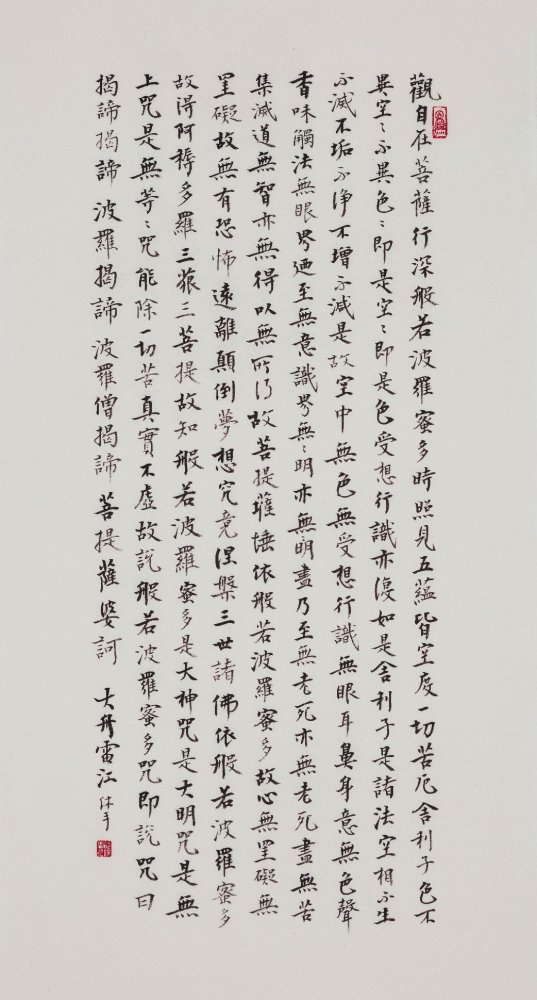 觀自在菩薩行深般若波羅蜜多時照見五蘊皆空度一切苦厄舍利子色不
異空〻不異色〻即是空〻即是色受想行識亦復如是舍利子是諸法空相不生
不滅不垢不淨不增不減是故空中無色無受想行識無眼耳鼻身意無色聲
香味觸法無眼界廼至無意識界無〻明亦無明盡乃至無老死亦無老死盡無苦
集滅道無智亦無得以無所得故菩提薩埵依般若波羅蜜多故心無罣礙無
罣礙故無有恐怖遠離顛倒夢想究竟涅槃三世諸佛依般若波羅蜜多
故得阿耨多羅三藐三菩提故知般若波羅蜜多是大神咒是大明咒是無
上咒是無等〻咒能除一切苦真實不虛故說般若波羅蜜多咒即說咒曰
揭諦揭諦波羅揭諦波羅僧揭諦菩提薩婆訶 大舟雷江沐手